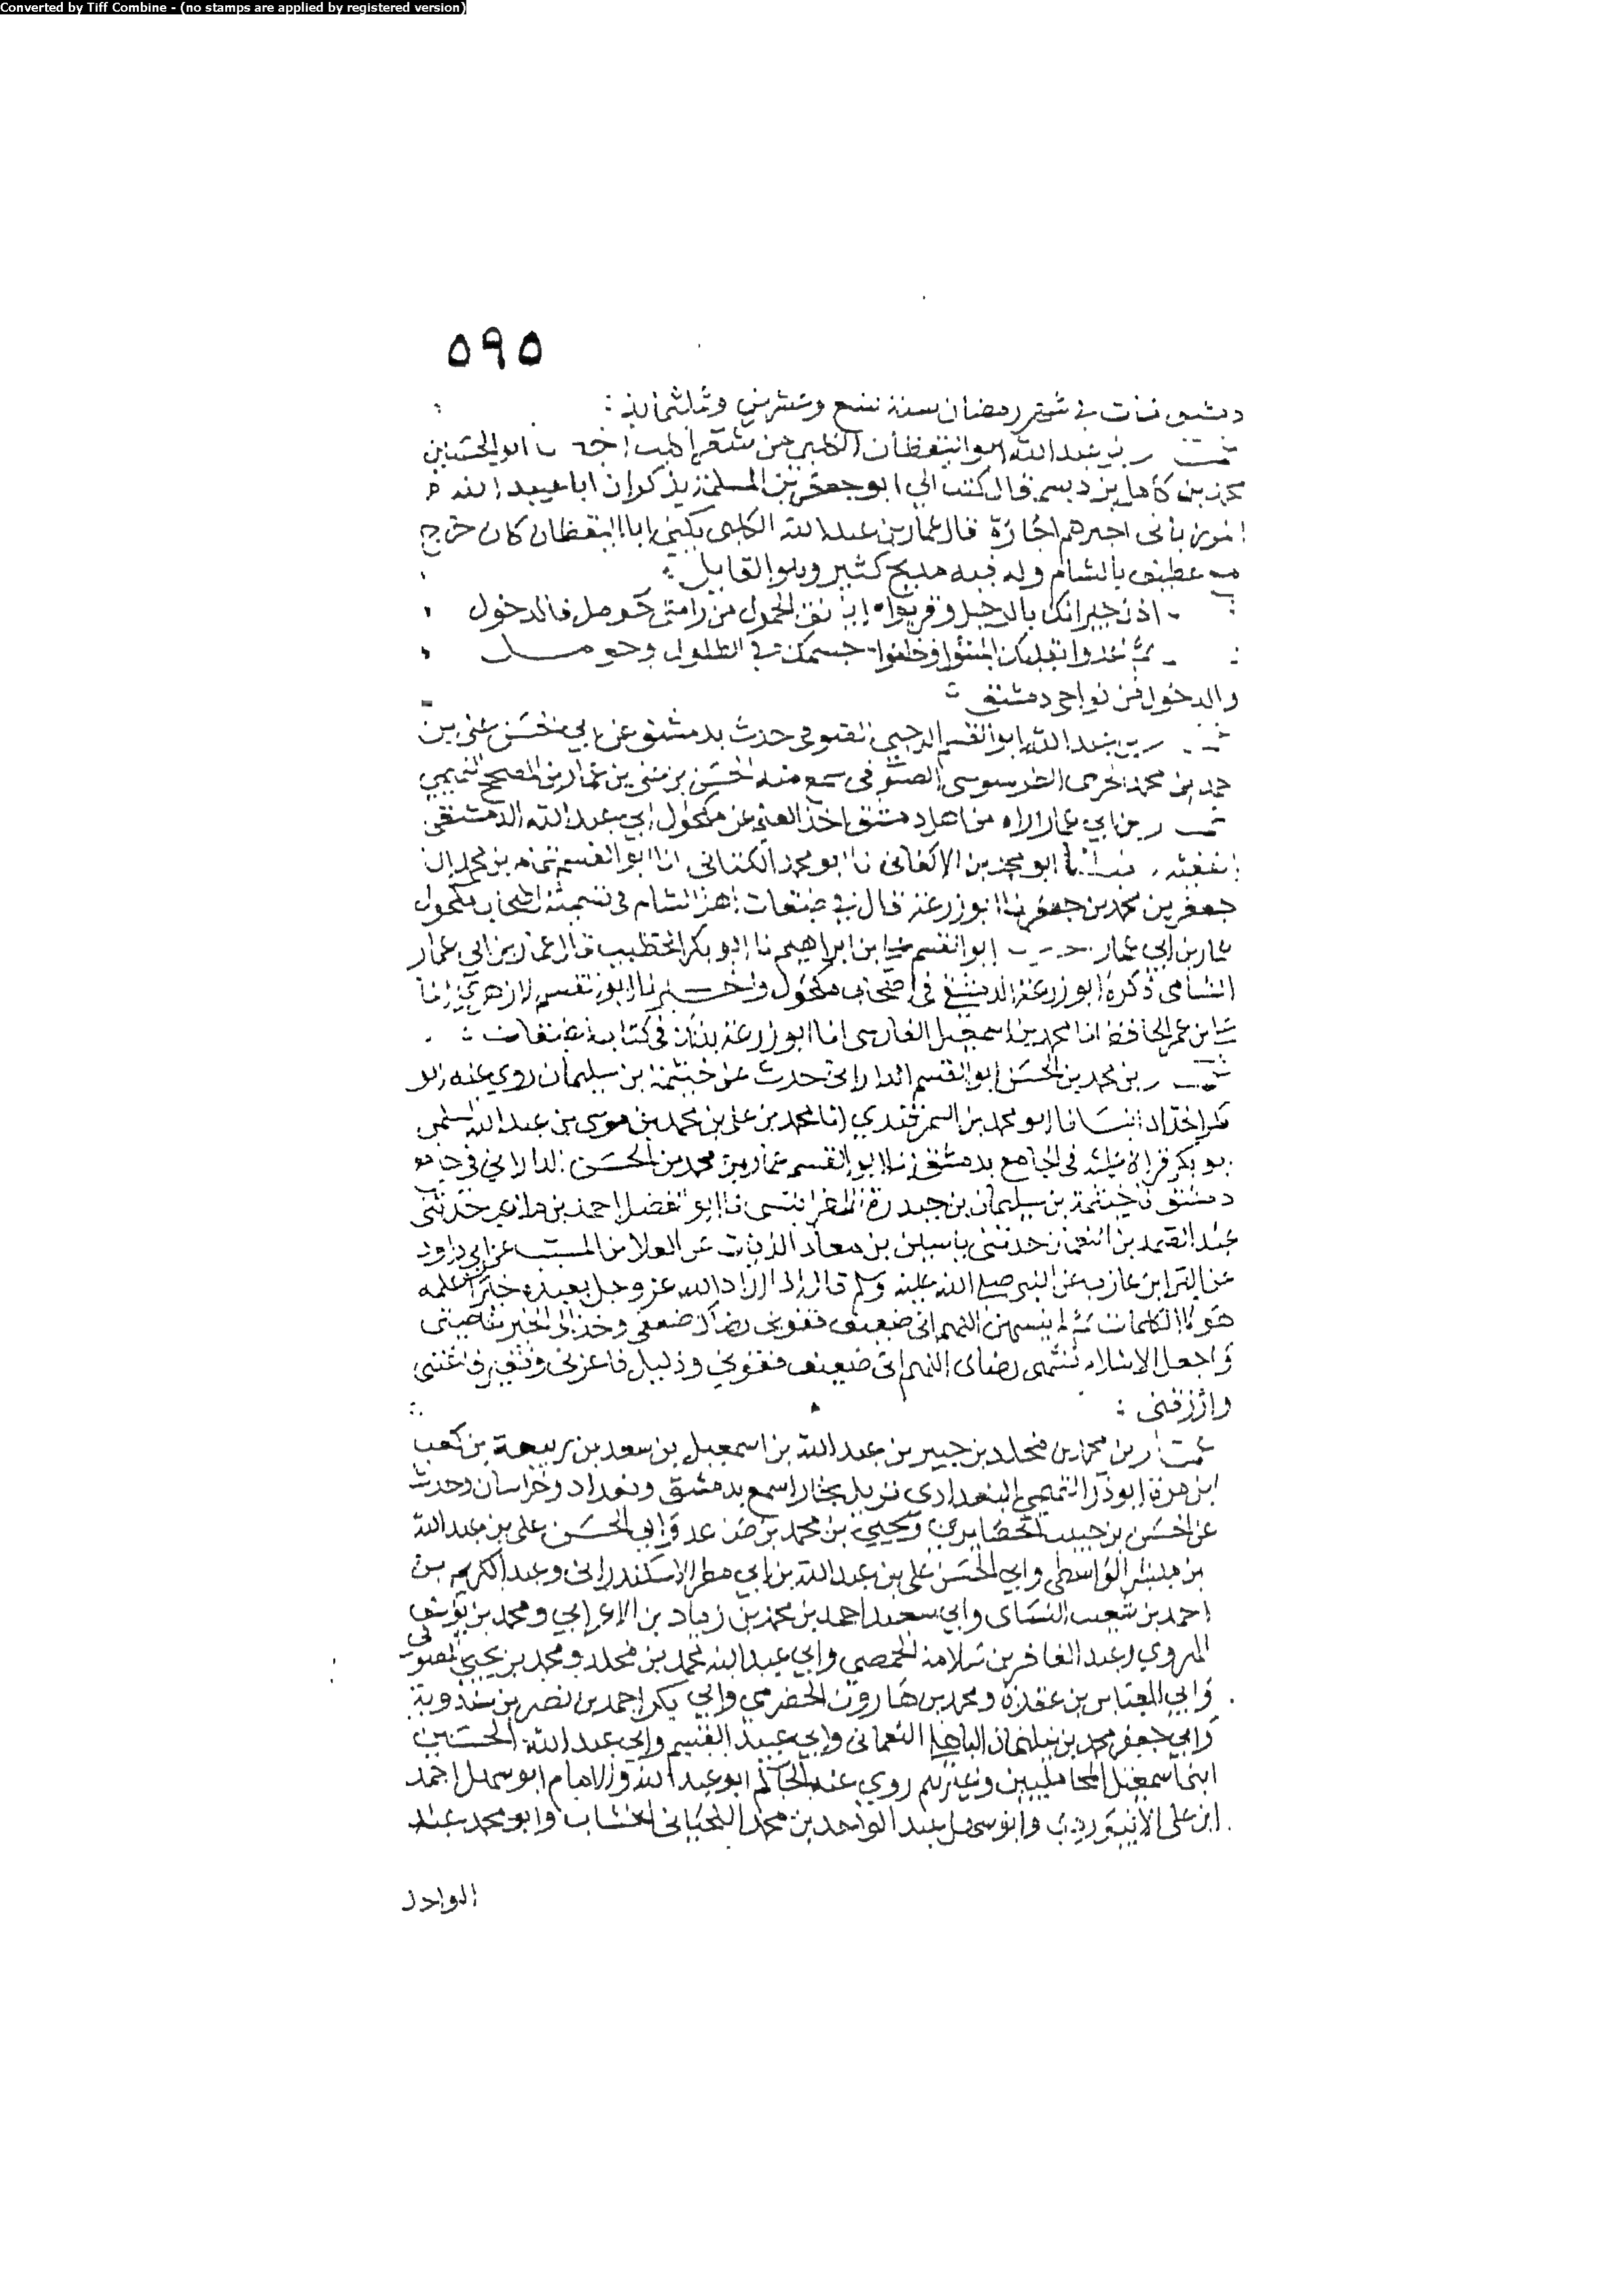 Converted by Tiff Combine - (no stamps are applied by registered version)
٥٩٥
دمشق مات في شهر رمضان سنة تسع وعشرين وثلثماية
بن عبد الله ابو اليقظان الكلبي من ابو الحسين
محمد بن كامل بن ديسم قال كتب الي ابو جعفر بن المسلمة يذكر ان ابا عبيد الله
اجازة قال عمار بن عبد الله الكلبي يكنى ابا اليقظان كان خرج
بالشام وله فيه مديح كثير وهو القايل
جيرانك بالدخول فالدخول
في الطلول وحومل
والدخول من نواحي دمشق
بن عبد الله ابو القسم الرحبي حدث بدمشق عن ابي الحسن علي بن
محمد الطرسوسي الصوفي سمع منه الحسن بن
بن ابي عمار اراه من اهل دمشق اخذ العلم عن مكحول ابي عبد الله الدمشقي
ابو محمد بن الاكفاني نا ابو محمد الكتاني انا ابو القسم تمام بن محمد انا
جعفر بن محمد بن جعفر نا ابو زرعة قال في طبقات اهل الشام في تسمية اصحاب مكحول
عمار بن ابي عمار ابو القسم بن ابراهيم نا ابو بكر الخطيب قال عمار بن ابي عمار
الشامي ذكره ابو زرعة الدمشقي في اصحاب مكحول نا ابو القسم الازهري انا
بن عمر الحافظ انا محمد بن اسمعيل الفارسي انا ابو زرعة بذلك في كتاب الطبقات
بن محمد بن الحسن ابو القسم الداراني حدث عن خيثمة بن سليمان روى عنه ابو
بكر الحداد انبانا ابو محمد بن السمرقندي انا محمد بن علي بن محمد بن موسى بن عبد الله السلمي
ابو بكر قراة عليه في الجامع بدمشق نا ابو القسم عمار بن محمد بن الحسن الداراني في جامع
دمشق نا خيثمة بن سليمان بن حيدرة الاطرابلسي نا ابو الفضل احمد بن حدثني
عبد الصمد بن النعمان حدثني ياسين بن معاذ الزيات عن العلا بن المسيب عن ابي داود
عن البرا بن عازب عن النبي صلى الله عليه وسلم قال اذا اراد الله عز وجل بعبده خيرا علمه
هولا الكلمات ثم لم ينسهن اللهم اني ضعيف فقوني رضاك ضعفي وخذ الى الخير بناصيتي
واجعل الاسلام منتهى رضاي اللهم اني ضعيف فقوني وذليل فاعزني وفقير فاغنني
وارزقني
عمار بن محمد بن مخلد بن جبير بن عبد الله بن اسمعيل بن سعد بن ربيعة بن كعب
ابن مرة ابو ذر التميمي البغدادي نزيل بخارا سمع بدمشق وبغداد وخراسان وحدث
عن الحسن بن حبيب الحصايري ويحيى بن محمد بن صاعد وابي الحسن علي بن عبد الله
بن مبشر الواسطي وابي الحسن علي بن عبد الله بن ابي مطر الاسكندراني وعبد الكريم بن
احمد بن شعيب النساي وابي سعيد احمد بن محمد بن زياد بن الاعرابي ومحمد بن يوسف
الهروي وعبد الغافر بن سلامة الحمصي وابي عبد الله محمد بن مخلد ومحمد بن يحيى الصولي
وابي العباس بن عقدة ومحمد بن هارون الحضرمي وابي بكر احمد بن نصر بن سندوية
وابي جعفر محمد بن سليمان الباهلي النعماني وابي عبيد القسم وابي عبد الله الحسين
ابني اسمعيل المحامليين وغيرهم روى عنه الحاكم ابو عبد الله والامام ابو سهل احمد
ابن علي الابيوردي وابو سهل عبد الواحد بن محمد اللحياني الخشاب وابو محمد عبد
الواحد